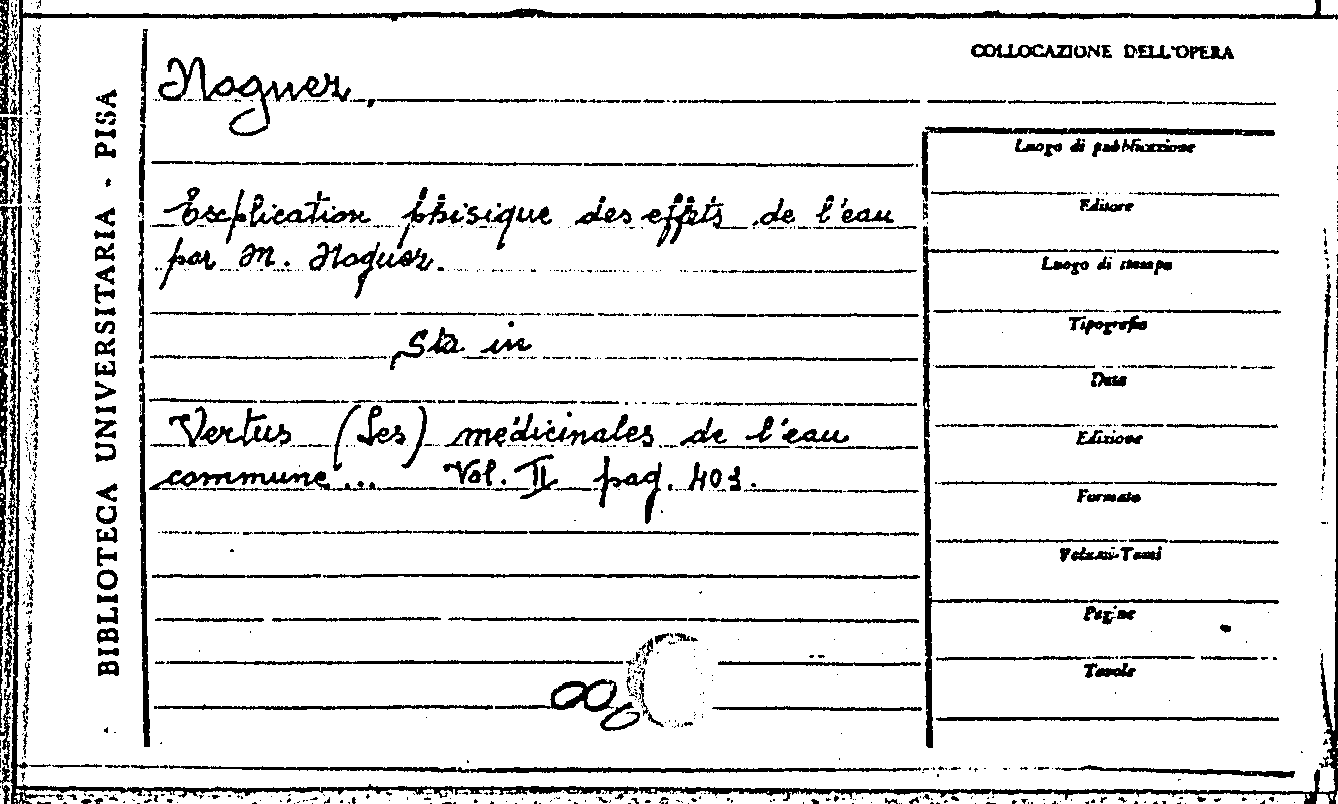 BIBLIOTECA UNIVERSITARIA - PISA
Noguez,
Explication phisique des effets de l'eau
par M. Noguez.
Sta in
Vertus (Les) médicinales de l'eau
commune... Vol. II pag. 401.
COLLOCAZIONE DELL'OPERA
Luogo di pubblicazione
Editore
Luogo di stampa
Tipografia
Data
Edizione
Formato
Volumi-Tomi
Pagine
Tavole